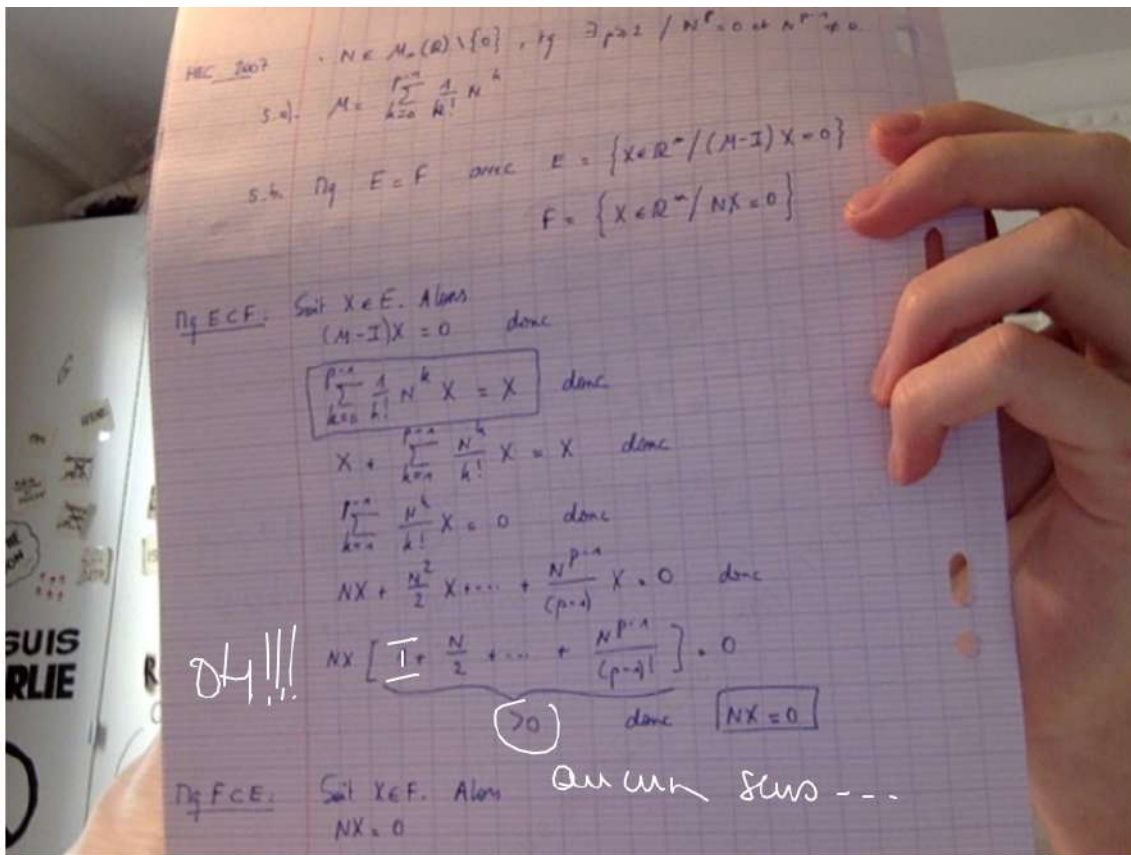 HEC 2007 . N ∈ Mn(ℝ) \ {0}, tq ∃ p≥2 / N^p = 0 et N^(p-1) ≠ 0
5.a). M = ∑_{k=0}^{p-1} 1/k! N^k
5.b. Mq E = F avec E = {X ∈ ℝ^n / (M-I) X = 0}
F = {X ∈ ℝ^n / NX = 0}
Mq E ⊂ F: Soit X ∈ E. Alors
(M-I)X = 0 donc
∑_{k=0}^{p-1} 1/k! N^k X = X donc
X + ∑_{k=1}^{p-1} N^k/k! X = X donc
∑_{k=1}^{p-1} N^k/k! X = 0 donc
NX + N^2/2 X + ... + N^(p-1)/(p-1) X = 0 donc
OH!!! NX [I + N/2 + ... + N^(p-1)/(p-1)!] = 0
>0 donc NX = 0
aucun sens ---
Mq F ⊂ E: Soit X ∈ F. Alors
NX = 0
SUIS
RLIE